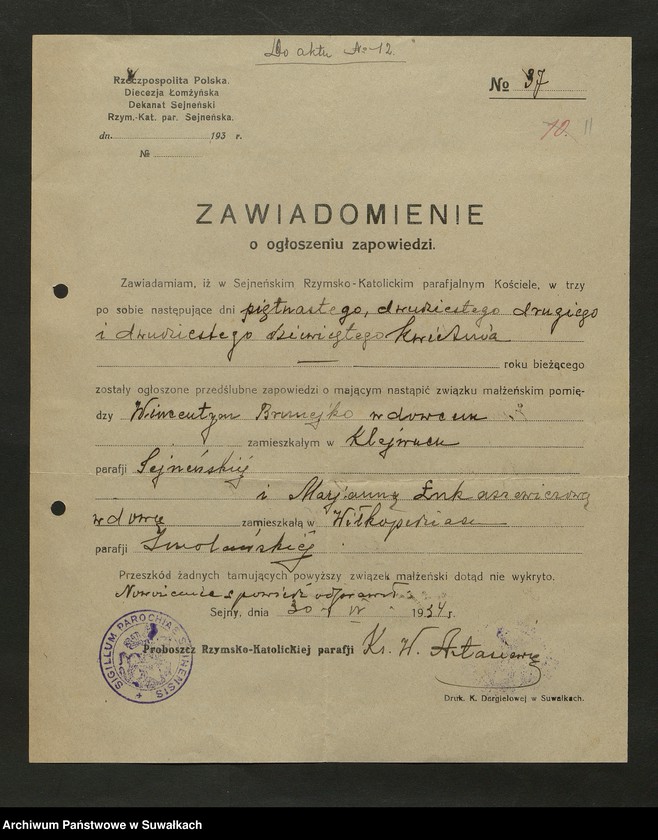 Do aktu No 12.
Rzeczpospolita Polska.
Diecezja Łomżyńska
Dekanat Sejneński
Rzym.-Kat. par. Sejneńska.
dn. 193 r.
№
№ 37
10. 11
ZAWIADOMIENIE
o ogłoszeniu zapowiedzi.
Zawiadamiam, iż w Sejneńskim Rzymsko-Katolickim parafjalnym Kościele, w trzy
po sobie następujące dni piętnastego, dwudziestego drugiego
i dwudziestego dziewiątego kwietnia
roku bieżącego
zostały ogłoszone przedślubne zapowiedzi o mającym nastąpić związku małżeńskim pomię-
dzy Wincentym Brunejko wdowcem
zamieszkałym w Klejwach
parafji Sejneńskiej
i Marjanną Łukaszewiczową
wdową zamieszkałą w Wiłkopedziach
parafji Smolańskiej
Przeszkód żadnych tamujących powyższy związek małżeński dotąd nie wykryto.
spowiedź
Sejny, dnia 30 IV 1934 r.
Proboszcz Rzymsko-Katolickiej parafji Ks. W.
SIGILLUM PAROCHIAE SEJNENSIS
Druk. K. Dargielowej w Suwałkach.
Archiwum Państwowe w Suwałkach